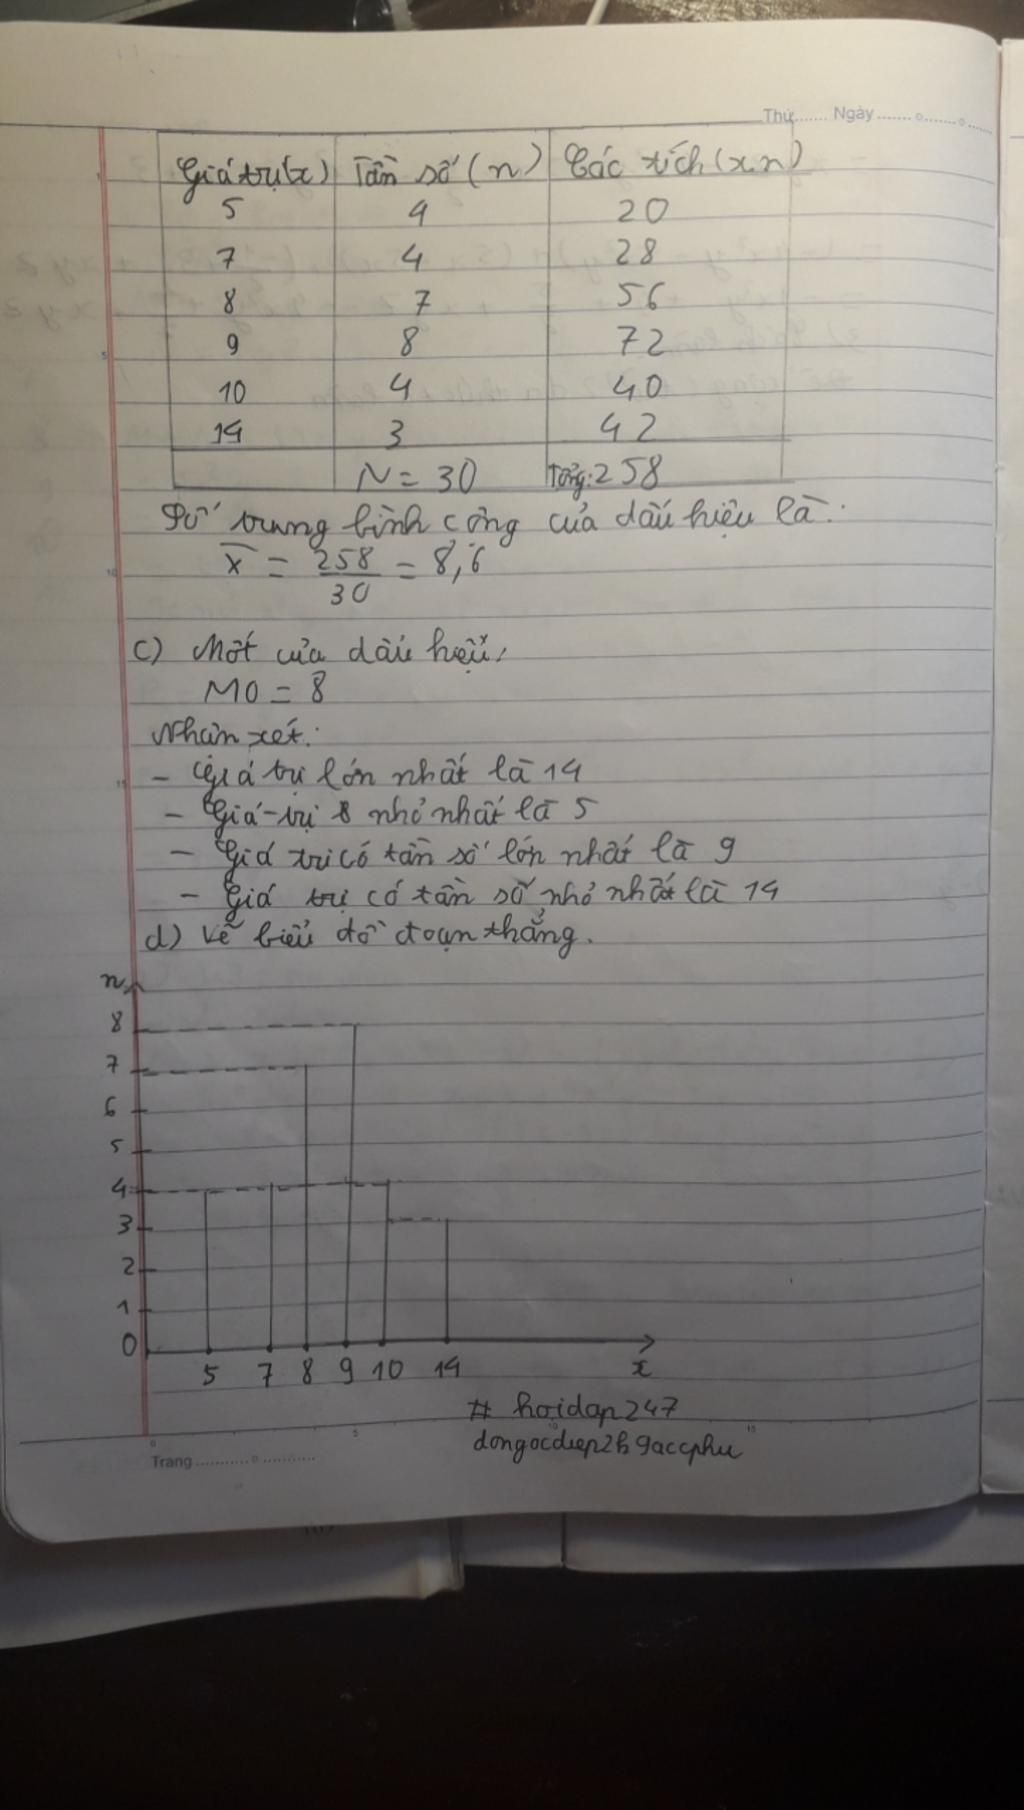 Thứ....... Ngày ....... o....... o.......
Giá trị(x) Tần số (n) Các tích (x.n)
5 4 20
7 4 28
8 7 56
9 8 72
10 4 40
14 3 42
N = 30 Tổng: 258
Số trung bình cộng của dấu hiệu là:
X = 258/30 = 8,6
c) Mốt của dấu hiệu:
M0 = 8
Nhận xét:
- Giá trị lớn nhất là 14
- Giá trị nhỏ nhất là 5
- Giá trị có tần số lớn nhất là 9
- Giá trị có tần số nhỏ nhất là 14
d) Vẽ biểu đồ đoạn thẳng.
n
8
7
6
5
4
3
2
1
0
5 7 8 9 10 14 x
# hoidap247
dongocdiep2k9accphu
Trang ........... o ............